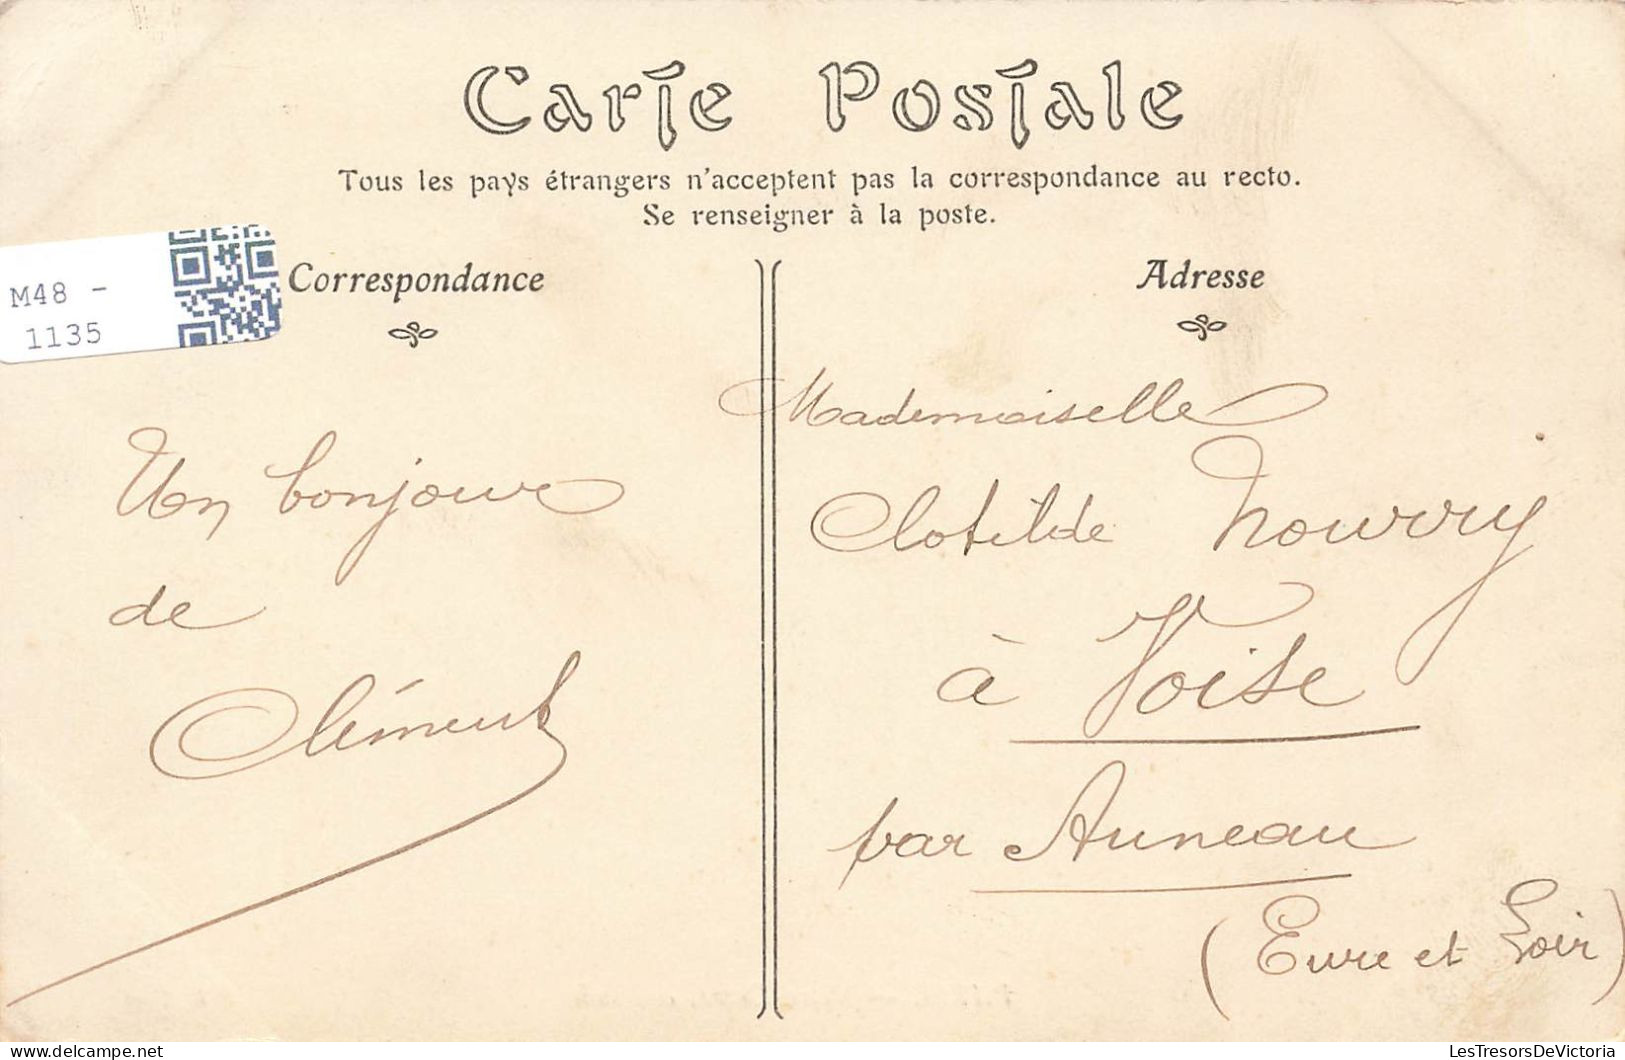 Carte Postale
Tous les pays étrangers n'acceptent pas la correspondance au recto.
Se renseigner à la poste.
M48 -
1135
Correspondance
Un bonjour
de
Clément
Adresse
Mademoiselle
Clotilde Nourry
à Voise
par Auneau
(Eure et Loir)
delcampe.net
LesTresorsDeVictoria